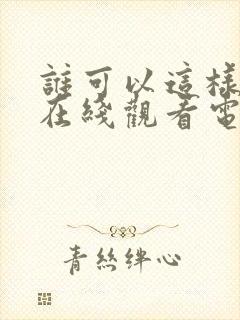 誰可以這樣
在綫觀看電
青絲絆心